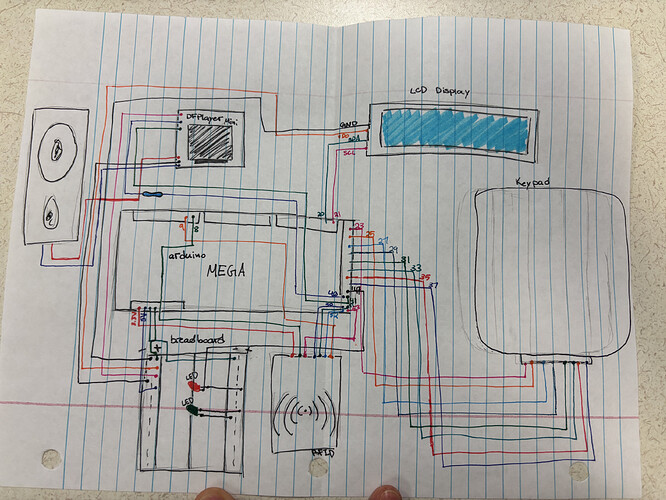 LCD Display
DFPlayer Mini
GND
SDA
SCL
Keypad
20 21
9 8
23
25
27
29
31
33
35
37
arduino
MEGA
3.3V
5V
breadboard
+
LED
LED
RFID